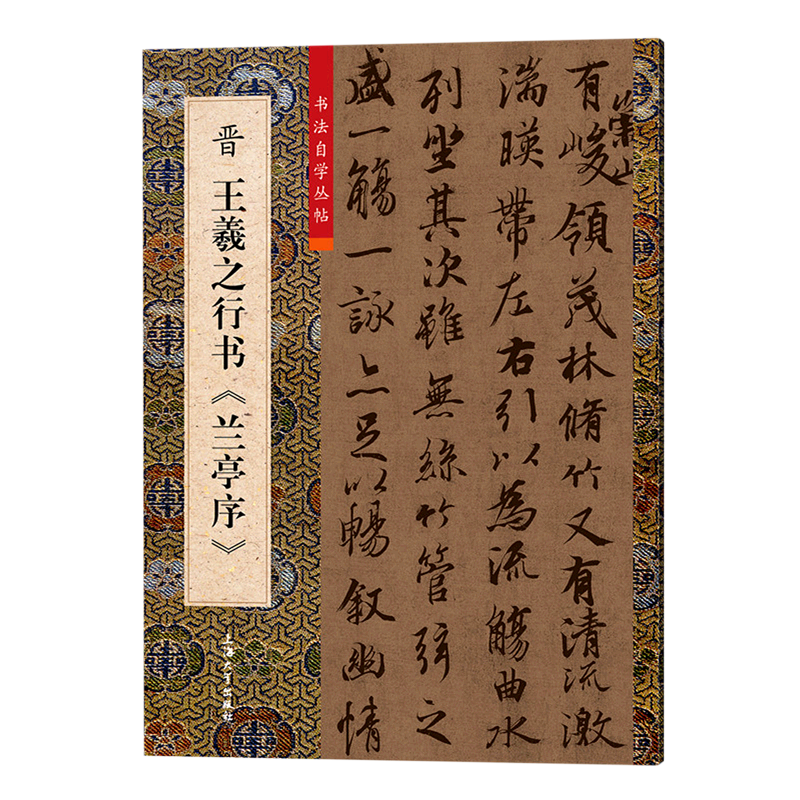 晋 王羲之行书《兰亭序》
书法自学丛帖
上海大学出版社
崇山
有峻領茂林脩竹又有清流激
湍暎帶左右引以為流觴曲水
列坐其次雖無絲竹管弦之
盛一觴一詠亦足以暢叙幽情